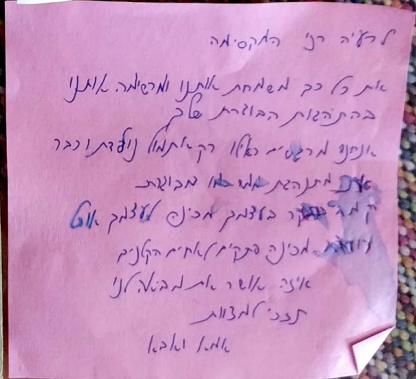 לרעיה רני המקסימה
את כל כך משמחת אותנו ומרשימה אותנו
בהתנהגות הבוגרת שלך
אנחנו מרגישים כאילו רק אתמול נולדת וכבר
את מתנהגת ממש כמו מבוגרת
קמה בבוקר בעצמך מכינה לעצמך אוכל
ואפילו מכינה פתקים לאחים הקטנים
איזה אושר את מביאה לנו
תזכי למצוות
אמא ואבא